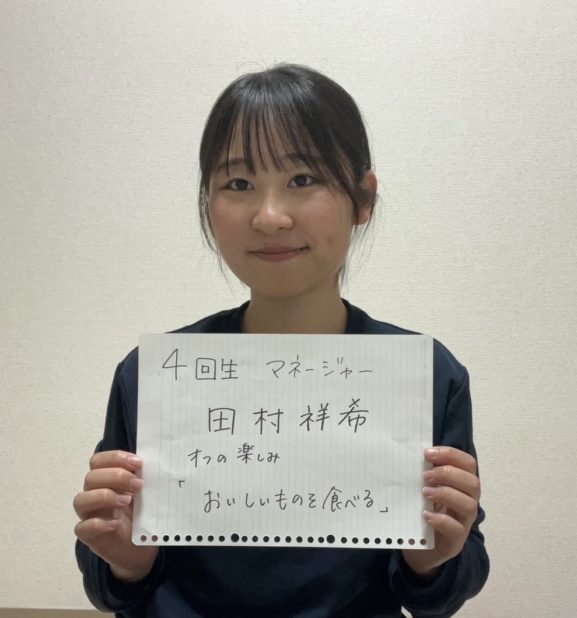 4回生 マネージャー
田村祥希
オフの楽しみ
「おいしいものを食べる」